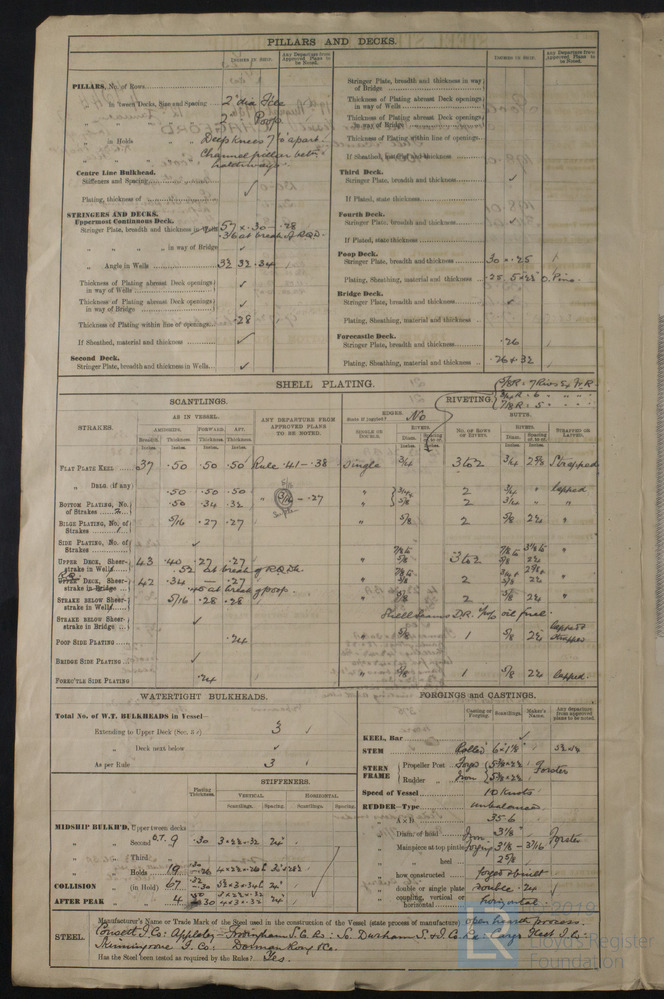 PILLARS AND DECKS.
INCHES IN SHIP.
Any Departure from Approved Plans to be Noted.
PILLARS, No. of Rows
in 'Tween Decks, Size and Spacing 2" dia
" " 2" Poop
in Holds Deep Knees 7½ apart
Channel pillar betn
hatchways
Centre Line Bulkhead.
Stiffeners and Spacing ✓
Plating, thickness of
STRINGERS AND DECKS.
Uppermost Continuous Deck.
Stringer Plate, breadth and thickness in Wells 57 × .30 - .28
.36 at break of R.Q.D.
" " " in way of Bridge ✓
" Angle in Wells 3½ 3½ .34
Thickness of Plating abreast Deck openings in way of Wells ✓
Thickness of Plating abreast Deck openings in way of Bridge ✓
Thickness of Plating within line of openings .28
If Sheathed, material and thickness ✓
Second Deck.
Stringer Plate, breadth and thickness in Wells ✓
INCHES IN SHIP.
Any Departure from Approved Plans to be Noted.
Stringer Plate, breadth and thickness in way of Bridge
Thickness of Plating abreast Deck openings in way of Wells
Thickness of Plating abreast Deck openings in way of Bridge
Thickness of Plating within line of openings
If Sheathed, material and thickness
Third Deck.
Stringer Plate, breadth and thickness ✓
If Plated, state thickness
Fourth Deck.
Stringer Plate, breadth and thickness ✓
If Plated, state thickness
Poop Deck.
Stringer Plate, breadth and thickness 30 × .25
Plating, Sheathing, material and thickness .25 5×2½ O. Pine
Bridge Deck.
Stringer Plate, breadth and thickness ✓
Plating, Sheathing, material and thickness
Forecastle Deck.
Stringer Plate, breadth and thickness .26
Plating, Sheathing, material and thickness .26 + 32
SHELL PLATING.
SCANTLINGS.
STRAKES.
AS IN VESSEL.
AMIDSHIPS. FORWARD. AFT.
Breadth. Thickness. Thickness. Thickness.
Inches. Inches. Inches. Inches.
ANY DEPARTURE FROM APPROVED PLANS TO BE NOTED.
RIVETING.
5/8 R = 7
3/4 R = 6 " "
7/8 R = 5 " "
EDGES.
State if joggled? No
SINGLE OR DOUBLE.
RIVETS.
Diam. Spacing cr. to cr.
BUTTS.
NO. OF ROWS OF RIVETS.
RIVETS.
Diam. Spacing cr. to cr.
STRAPPED OR LAPPED.
FLAT PLATE KEEL 37 .50 .50 .50 Rule .41 - .38 Single 3/4 3 to 2 3/4 2 5/8 Strapped
" DBLG. (if any)
.50 .50 .50 " 2 3/4 " lapped
BOTTOM PLATING, No. of Strakes .50 .34 .32 - .27 " 5/8 2 3/4 " "
BILGE PLATING, No. of Strakes 5/16 .27 .27 " 5/8 2 5/8 2¼ "
SIDE PLATING, No. of Strakes ✓
UPPER DECK, Sheerstrake in Wells 43 .40 .27 .27 " 7/8 to 5/8 3 to 2 7/8 to 5/8 3 1/8 to 2¼ "
.52 at break of R.Q.Dk.
R.Q. UPPER DECK, Sheerstrake in Bridge 42 .34 — .27 " 5/8 2 5/8 2¼ "
.45 at break of poop
STRAKE BELOW Sheerstrake in Wells 5/16 .28 .28 " 5/8 2 5/8 2¼ "
STRAKE BELOW Sheerstrake in Bridge ✓
Shell Seams D.R. oil fuel.
POOP SIDE PLATING .24 " 5/8 1 5/8 2¼ lapped & strapped
BRIDGE SIDE PLATING ✓
FORECTLE SIDE PLATING .24 " 5/8 1 5/8 2¼ lapped.
WATERTIGHT BULKHEADS.
Total No. of W.T. BULKHEADS in Vessel—
Extending to Upper Deck 3
" Deck next below ✓
As per Rule 3
Plating Thickness.
STIFFENERS.
VERTICAL. HORIZONTAL.
Scantlings. Spacing. Scantlings. Spacing.
MIDSHIP BULKH'D, Upper tween decks
" " Second " 9 .30 3×2½×.32 24"
" " Third "
" " Holds 19
COLLISION " (in Hold) 67
AFTER PEAK " 4
FORGINGS and CASTINGS.
Casting or Forging. Scantlings. Maker's Name. Any departure from approved plans to be noted.
KEEL, Bar ✓
STEM Rolled 6 × 1 1/8"
STERN FRAME Propeller Post Forge 5 3/8 × 2¾ Forster
Rudder " Iron 5 3/8 × 2¾
Speed of Vessel 10 Knots
RUDDER—Type unbalanced.
" A × D 35.6
" Diam. of head Iron 3 1/8" Forster
" Mainpiece at top pintle Forging 3 1/8 - 3 7/16
" " heel 2 5/8
" how constructed forged & built
" double or single plate double .24
" coupling, vertical or horizontal horizontal
STEEL. Manufacturer's Name or Trade Mark of the Steel used in the construction of the Vessel (state process of manufacture) open hearth process.
Consett I. Co: Appleby - Frodingham S. Co. So. Durham S. & I. Co. Ld: Cargo Fleet I. Co:
Skinningrove I. Co: Dorman Long & Co.
Has the Steel been tested as required by the Rules? Yes.
© 2019
LR
Lloyd's Register
Foundation